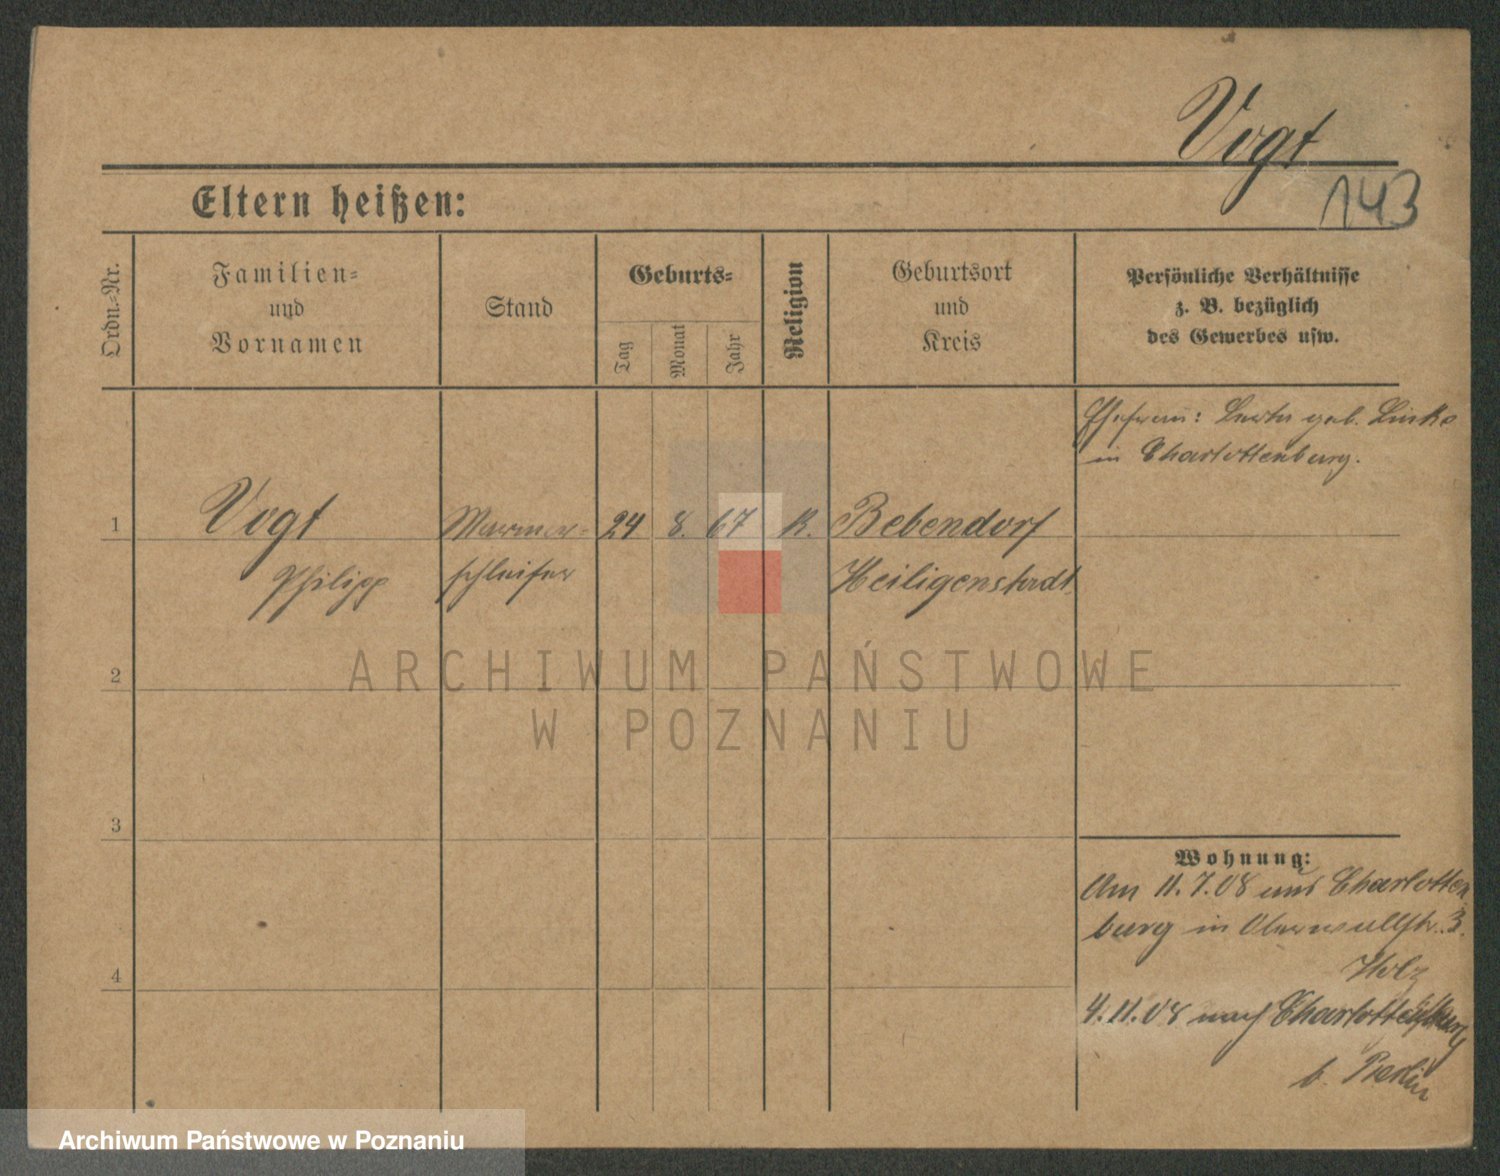 Vogt
143
Eltern heißen:
Ordn.-Nr.
Familien-
und
Vornamen
Stand
Geburts-
Tag
Monat
Jahr
Religion
Geburtsort
und
Kreis
Persönliche Verhältnisse
z. B. bezüglich
des Gewerbes usw.
Ehefrau: geb.
in Charlottenburg.
1
Vogt
Philipp
Marmor-
schleifer
24
8.
67
K.
Bebendorf
Heiligenstadt.
2
3
4
Wohnung:
Am 11.7.08 aus Charlotten
burg in Oberwallstr. 3.
Holz
4.11.08 nach Charlottenburg
b. Berlin
ARCHIWUM PAŃSTWOWE
W POZNANIU
Archiwum Państwowe w Poznaniu